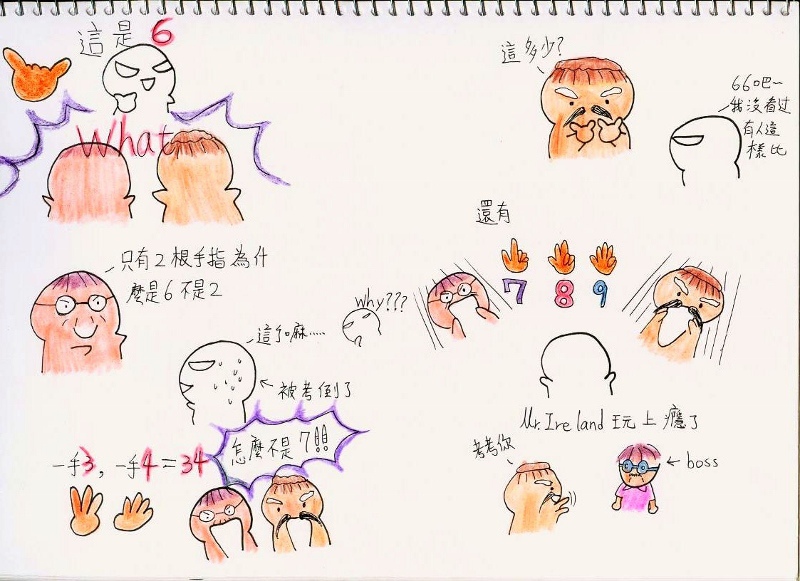 這是6
What
只有2根手指為什
麼是6不是2
why???
這個嘛.....
被考倒了
一手3,一手4=34
怎麼不是7!!
這多少?
66吧~
我沒看过
有人這
樣比
還有
7 8 9
Mr.Ireland玩上癮了
考考你
boss